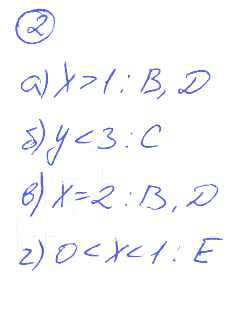 2
а) x > 1 : B, D
б) y < 3 : C
в) x = 2 : B, D
г) 0 < x < 1 : E